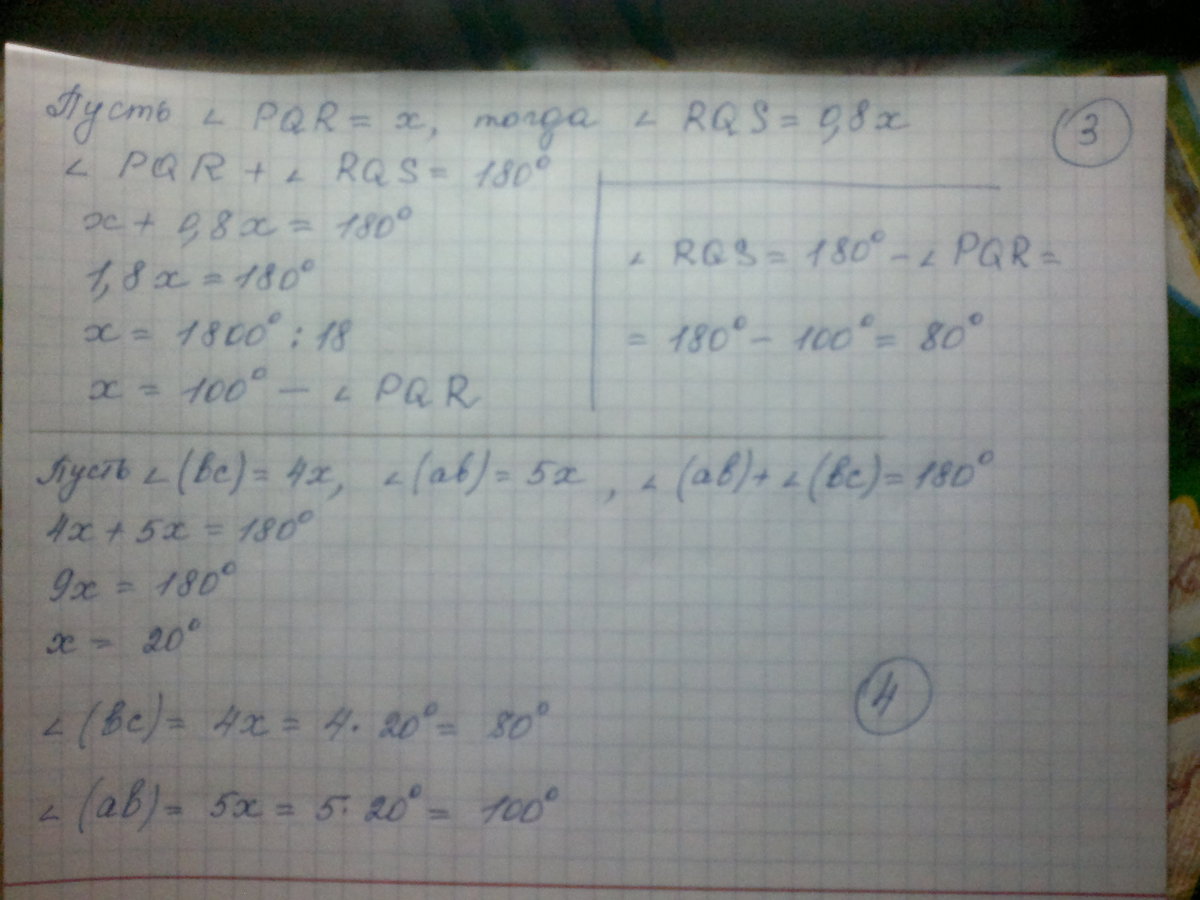 Пусть ∠ PQR = x, тогда ∠ RQS = 0,8x
3
∠ PQR + ∠ RQS = 180°
x + 0,8x = 180°
1,8x = 180°
x = 1800° : 18
x = 100° — ∠ PQR
∠ RQS = 180° – ∠ PQR =
= 180° – 100° = 80°
Пусть ∠(bc) = 4x, ∠(ab) = 5x, ∠(ab) + ∠(bc) = 180°
4x + 5x = 180°
9x = 180°
x = 20°
4
∠(bc) = 4x = 4 · 20° = 80°
∠(ab) = 5x = 5 · 20° = 100°